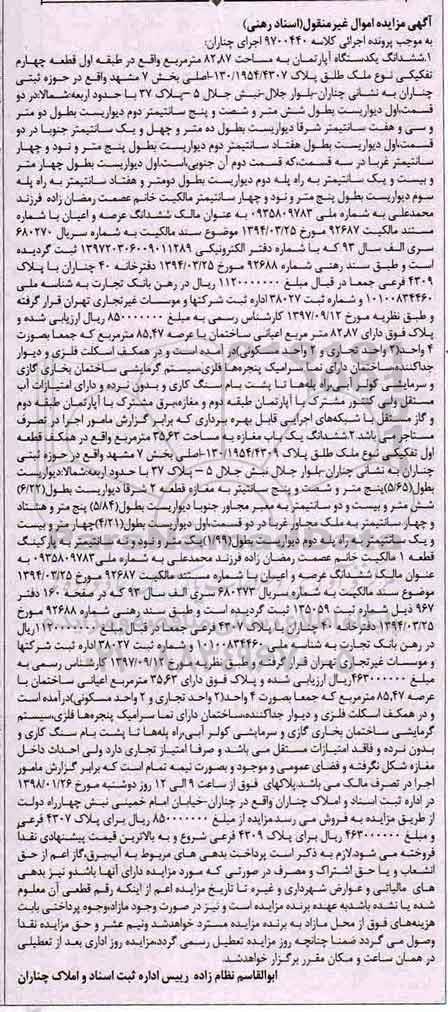 آگهی مزایده اموال غیرمنقول(اسناد رهنی)
به موجب پرونده اجرائی کلاسه ۹۷۰۰۴۴۰ اجرای چناران:
۱.ششدانگ یکدستگاه آپارتمان به مساحت ۸۲٫۸۷ مترمربع واقع در طبقه اول قطعه چهارم
تفکیکی نوع ملک طلق پلاک ۱۳۰/۱۹۵۴/۴۳۰۷-اصلی بخش ۷ مشهد واقع در حوزه ثبتی
چناران به نشانی چناران-بلوار جلال-نبش جلال ۵ -پلاک ۳۷ با حدود اربعه:شمالا:در دو
قسمت،اول دیواریست بطول شش متر و شصت و پنج سانتیمتر دوم دیواریست بطول دو متر
و سی و هفت سانتیمتر شرقا دیواریست بطول ده متر و چهل و یک سانتیمتر جنوبا در دو
قسمت،اول دیواریست بطول هفتاد سانتیمتر دوم دیواریست بطول پنج متر و نود و چهار
سانتیمتر غربا در سه قسمت،که قسمت دوم آن جنوبی،است.اول دیواریست بطول چهار متر
و بیست و یک سانتیمتر به راه پله دوم دیواریست بطول دومتر و هفتاد سانتیمتر به راه پله
سوم دیواریست بطول پنج متر و نود و چهار سانتیمتر مالکیت خانم عصمت رمضان زاده فرزند
محمدعلی به شماره ملی ۰۹۳۵۸۰۹۷۸۳ به عنوان مالک ششدانگ عرصه و اعیان با شماره
مستند مالکیت ۹۲۶۸۷ مورخ ۱۳۹۴/۰۳/۲۵ موضوع سند مالکیت به شماره سریال ۶۸۰۲۷۰
سری الف سال ۹۳ که با شماره دفتر الکترونیکی ۱۳۹۷۲۰۳۰۶۰۰۹۰۱۱۲۸۹ ثبت گردیده
است و طبق سند رهنی شماره ۹۲۶۸۸ مورخ ۱۳۹۴/۰۳/۲۵ دفترخانه ۴۰ چناران با پلاک
۴۳۰۹ فرعی جمعا در قبال مبلغ ۱۱۲۰۰۰۰۰۰۰ ریال در رهن بانک تجارت به شناسه ملی
۱۰۱۰۰۸۳۴۴۶۰ و شماره ثبت ۳۸۰۲۷ اداره ثبت شرکتها و موسسات غیرتجاری تهران قرار گرفته
و طبق نظریه مورخ ۱۳۹۷/۰۹/۱۲ کارشناس رسمی به مبلغ ۸۵۰۰۰۰۰۰۰ ریال ارزیابی شده و
پلاک فوق دارای ۸۲٫۸۷ متر مربع اعیانی ساختمان با عرصه ۸۵٫۴۷ مترمربع که جمعا بصورت
۴ واحد(۲ واحد تجاری و ۲ واحد مسکونی)در آمده است و در همکف اسکلت فلزی و دیوار
جداکننده،ساختمان دارای نما سرامیک پنجره‌ها فلزی،سیستم گرمایشی ساختمان بخاری گازی
و سرمایشی کولر آبی،راه پله‌ها تا پشت بام سنگ کاری و بدون نرده و دارای امتیازات آب
مستقل ولی کنتور مشترک با آپارتمان طبقه دوم و مغازه،برق مشترک با آپارتمان طبقه دوم
و گاز مستقل با شبکه‌های اجرایی قابل بهره برداری که برابر گزارش مامور اجرا در تصرف
مستاجر می باشد.۲.ششدانگ یک باب مغازه به مساحت ۳۵٫۶۳ مترمربع واقع در همکف قطعه
اول تفکیکی نوع ملک طلق پلاک ۱۳۰/۱۹۵۴/۴۳۰۹-اصلی بخش ۷ مشهد واقع در حوزه ثبتی
چناران به نشانی چناران-بلوار جلال نبش جلال ۵ - پلاک ۳۷ با حدود اربعه:شمالا:دیواریست
بطول(۵/۶۵)پنج متر و شصت و پنج سانتیتر به مغازه قطعه ۲ شرقا دیواریست بطول(۶/۲۲)
شش متر و بیست و دو سانتیمتر به معبر مجاور جنوبا دیواریست بطول(۵/۸۴) پنج متر و هشتاد
و چهار سانتیمتر به ملک مجاور غربا در دو قسمت،اول دیواریست بطول(۴/۲۱)چهار متر و بیست
و یک سانتیمتر به راه پله دوم دیواریست بطول(۱/۹۹)یک متر و نودونه سانتیمتر به پارکینگ
قطعه ۱ مالکیت خانم عصمت رمضان زاده فرزند محمدعلی به شماره ملی ۰۹۳۵۸۰۹۷۸۳ به
عنوان مالک ششدانگ عرصه و اعیان با شماره مستند مالکیت ۹۲۶۸۷ مورخ ۱۳۹۴/۰۳/۲۵
موضوع سند مالکیت به شماره سریال ۶۸۰۲۷۳ سری الف سال ۹۳ که در صفحه ۱۶۰ دفتر
۹۶۷ ذیل شماره ثبت ۱۳۵۰۵۹ ثبت گردیده است و طبق سند رهنی شماره ۹۲۶۸۸ مورخ
۱۳۹۴/۰۳/۲۵ دفترخانه ۴۰ چناران با پلاک ۴۳۰۷ فرعی جمعا در قبال مبلغ ۱۱۲۰۰۰۰۰۰۰ریال
در رهن بانک تجارت به شناسه ملی ۱۰۱۰۰۸۳۴۴۶۰ و شماره ثبت ۳۸۰۲۷ اداره ثبت شرکتها
و موسسات غیر تجاری تهران قرار گرفته و طبق نظریه مورخ ۱۳۹۷/۰۹/۱۲ کارشناس رسمی به
مبلغ ۴۶۳۰۰۰۰۰۰ریال ارزیابی شده و پلاک فوق دارای ۳۵٫۶۳ مترمربع اعیانی ساختمان با
عرصه ۸۵٫۴۷ مترمربع که جمعا بصورت ۴ واحد(۲ واحد تجاری و ۲ واحد مسکونی)درآمده است
و در همکف اسکلت فلزی و دیوار جداکننده،ساختمان دارای نما سرامیک پنجره‌ها فلزی،سیستم
گرمایشی ساختمان بخاری گازی و سرمایشی کولر آبی،راه پله‌ها تا پشت بام سنگ کاری و
بدون نرده و فاقد امتیازات مستقل می باشد و صرفا امتیاز تجاری دارد ولی احداث داخل
مغازه شکل نگرفته و فضای عمومی و موجود و بصورت نیمه تمام است که برابر گزارش مامور
اجرا در تصرف مالک می باشد.پلاکهای فوق از ساعت ۹ الی ۱۲ روز دوشنبه مورخ ۱۳۹۸/۰۱/۲۶
در اداره ثبت اسناد و املاک چناران واقع در چناران-خیابان امام خمینی نبش چهارراه دولت
از طریق مزایده به فروش می رسد.مزایده از مبلغ ۸۵۰۰۰۰۰۰۰ ریال برای پلاک ۴۳۰۷ فرعی
و مبلغ ۴۶۳۰۰۰۰۰۰ ریال برای پلاک ۴۳۰۹ فرعی شروع و به بالاترین قیمت پیشنهادی نقداً
فروخته می شود.لازم به ذکر است پرداخت بدهی های مربوط به آب،برق،گاز اعم از حق
انشعاب و یا حق اشتراک و مصرف در صورتی که مورد مزایده دارای آنها باشد،و نیز بدهی
های مالیاتی و عوارض شهرداری و غیره تا تاریخ مزایده اعم از اینکه رقم قطعی آن معلوم
شده یا نشده باشد،به عهده برنده مزایده است و نیز در صورت وجود مازاد،وجوه پرداختی بابت
هزینه‌های فوق از محل مازاد به برنده مزایده مسترد خواهدشد ونیم عشر و حق مزایده نقدا
وصول می گردد ضمنا چنانچه روز مزایده تعطیل رسمی گردد،مزایده روز اداری بعد از تعطیلی
در همان ساعت و مکان مقرر برگزار خواهدشد.
ابوالقاسم نظام زاده رییس اداره ثبت اسناد و املاک چناران